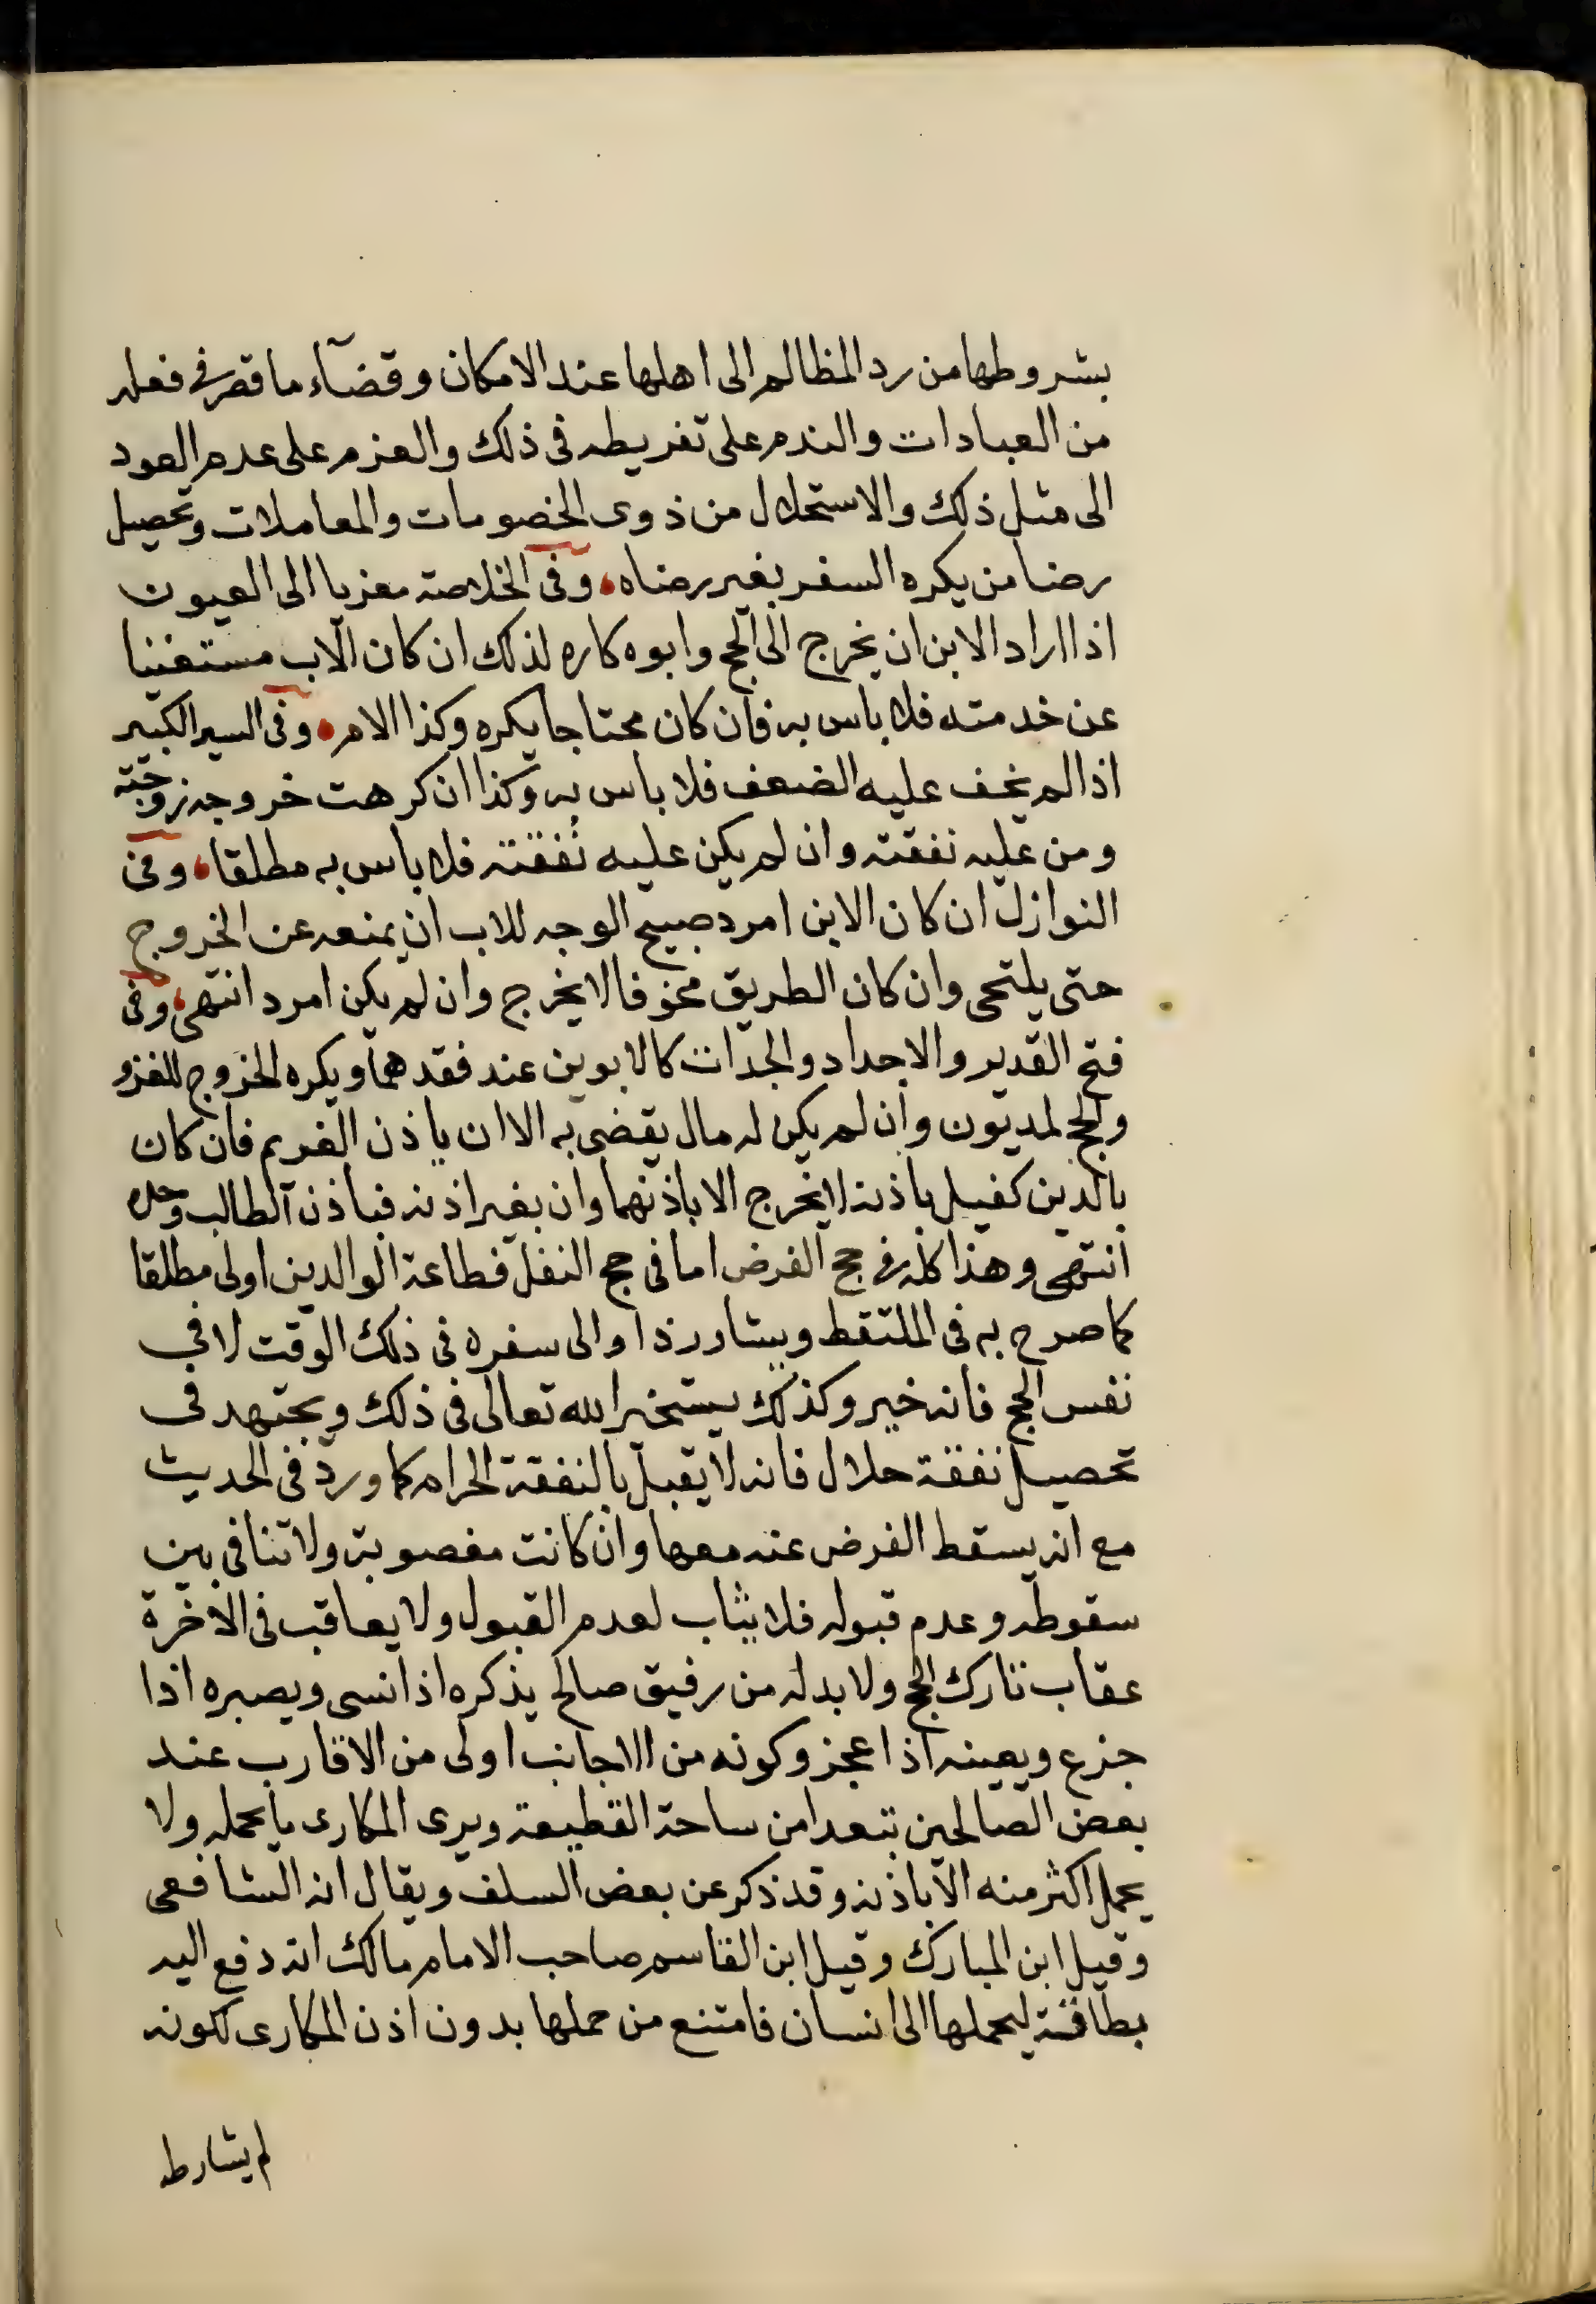 بشروطها من رد المظالم الى اهلها عند الامكان وقضآء ما قصر في فعله
من العبادات والندم على تفريطه فى ذلك والعزم على عدم العود
الى مثل ذلك والاستحلال من ذوى الخصومات والمعاملات وتحصيل
رضا من يكره السفر بغير رضاه، وفى الخلاصة معزيا الى العيون
اذا اراد الابن ان يخرج الى الحج وابوه كاره لذلك ان كان الاب مستغنيا
عن خدمته فلا باس به فان كان محتاجا يكره وكذا الام، وفى السير الكبير
اذا لم يخف عليه الضعف فلا باس به وكذا ان كرهت خروجه زوجته
ومن عليه نفقته وان لم يكن عليه نفقته فلا باس به مطلقا، وفى
النوازل ان كان الابن امرد صبيح الوجه للاب ان يمنعه عن الخروج
حتى يلتحى وان كان الطريق مخوفا لا يخرج وان لم يكن امرد انتهى، وفى
فتح القدير والاجداد والجدات كالابوين عند فقدهما ويكره الخروج للغزو
والحج لمديون وان لم يكن له مال يقضى به الا ان ياذن الغريم فان كان
بالدين كفيل باذنه لا يخرج الا باذنهما وان بغير اذنه فباذن الطالب وحده
انتهى وهذا كله في حج الفرض اما فى حج النفل فطاعة الوالدين اولى مطلقا
كما صرح به فى الملتقط ويشاور ذا راى سفره فى ذلك الوقت لا في
نفس الحج فانه خير وكذلك يستخير الله تعالى فى ذلك ويجتهد في
تحصيل نفقة حلال فانه لا يقبل بالنفقة الحرام كما ورد فى الحديث
مع انه يسقط الفرض عنه معها وان كانت مغصوبة ولا تنافى بين
سقوطه وعدم قبوله فلا يثاب لعدم القبول ولا يعاقب فى الآخرة
عقاب تارك الحج ولا بد له من رفيق صالح يذكره اذا نسى ويصبره اذا
جزع ويعينه اذا عجز وكونه من الاجانب اولى من الاقارب عند
بعض الصالحين تبعدا من ساحة القطيعة ويرى المكارى ما يحمله ولا
يحمل اكثر منه الا باذنه وقد ذكر عن بعض السلف ويقال انه الشافعى
وقيل ابن المبارك وقيل ابن القاسم صاحب الامام مالك انه دفع اليه
بطاقة ليحملها الى انسان فامتنع من حملها بدون اذن المكارى لكونه
لم يشارط